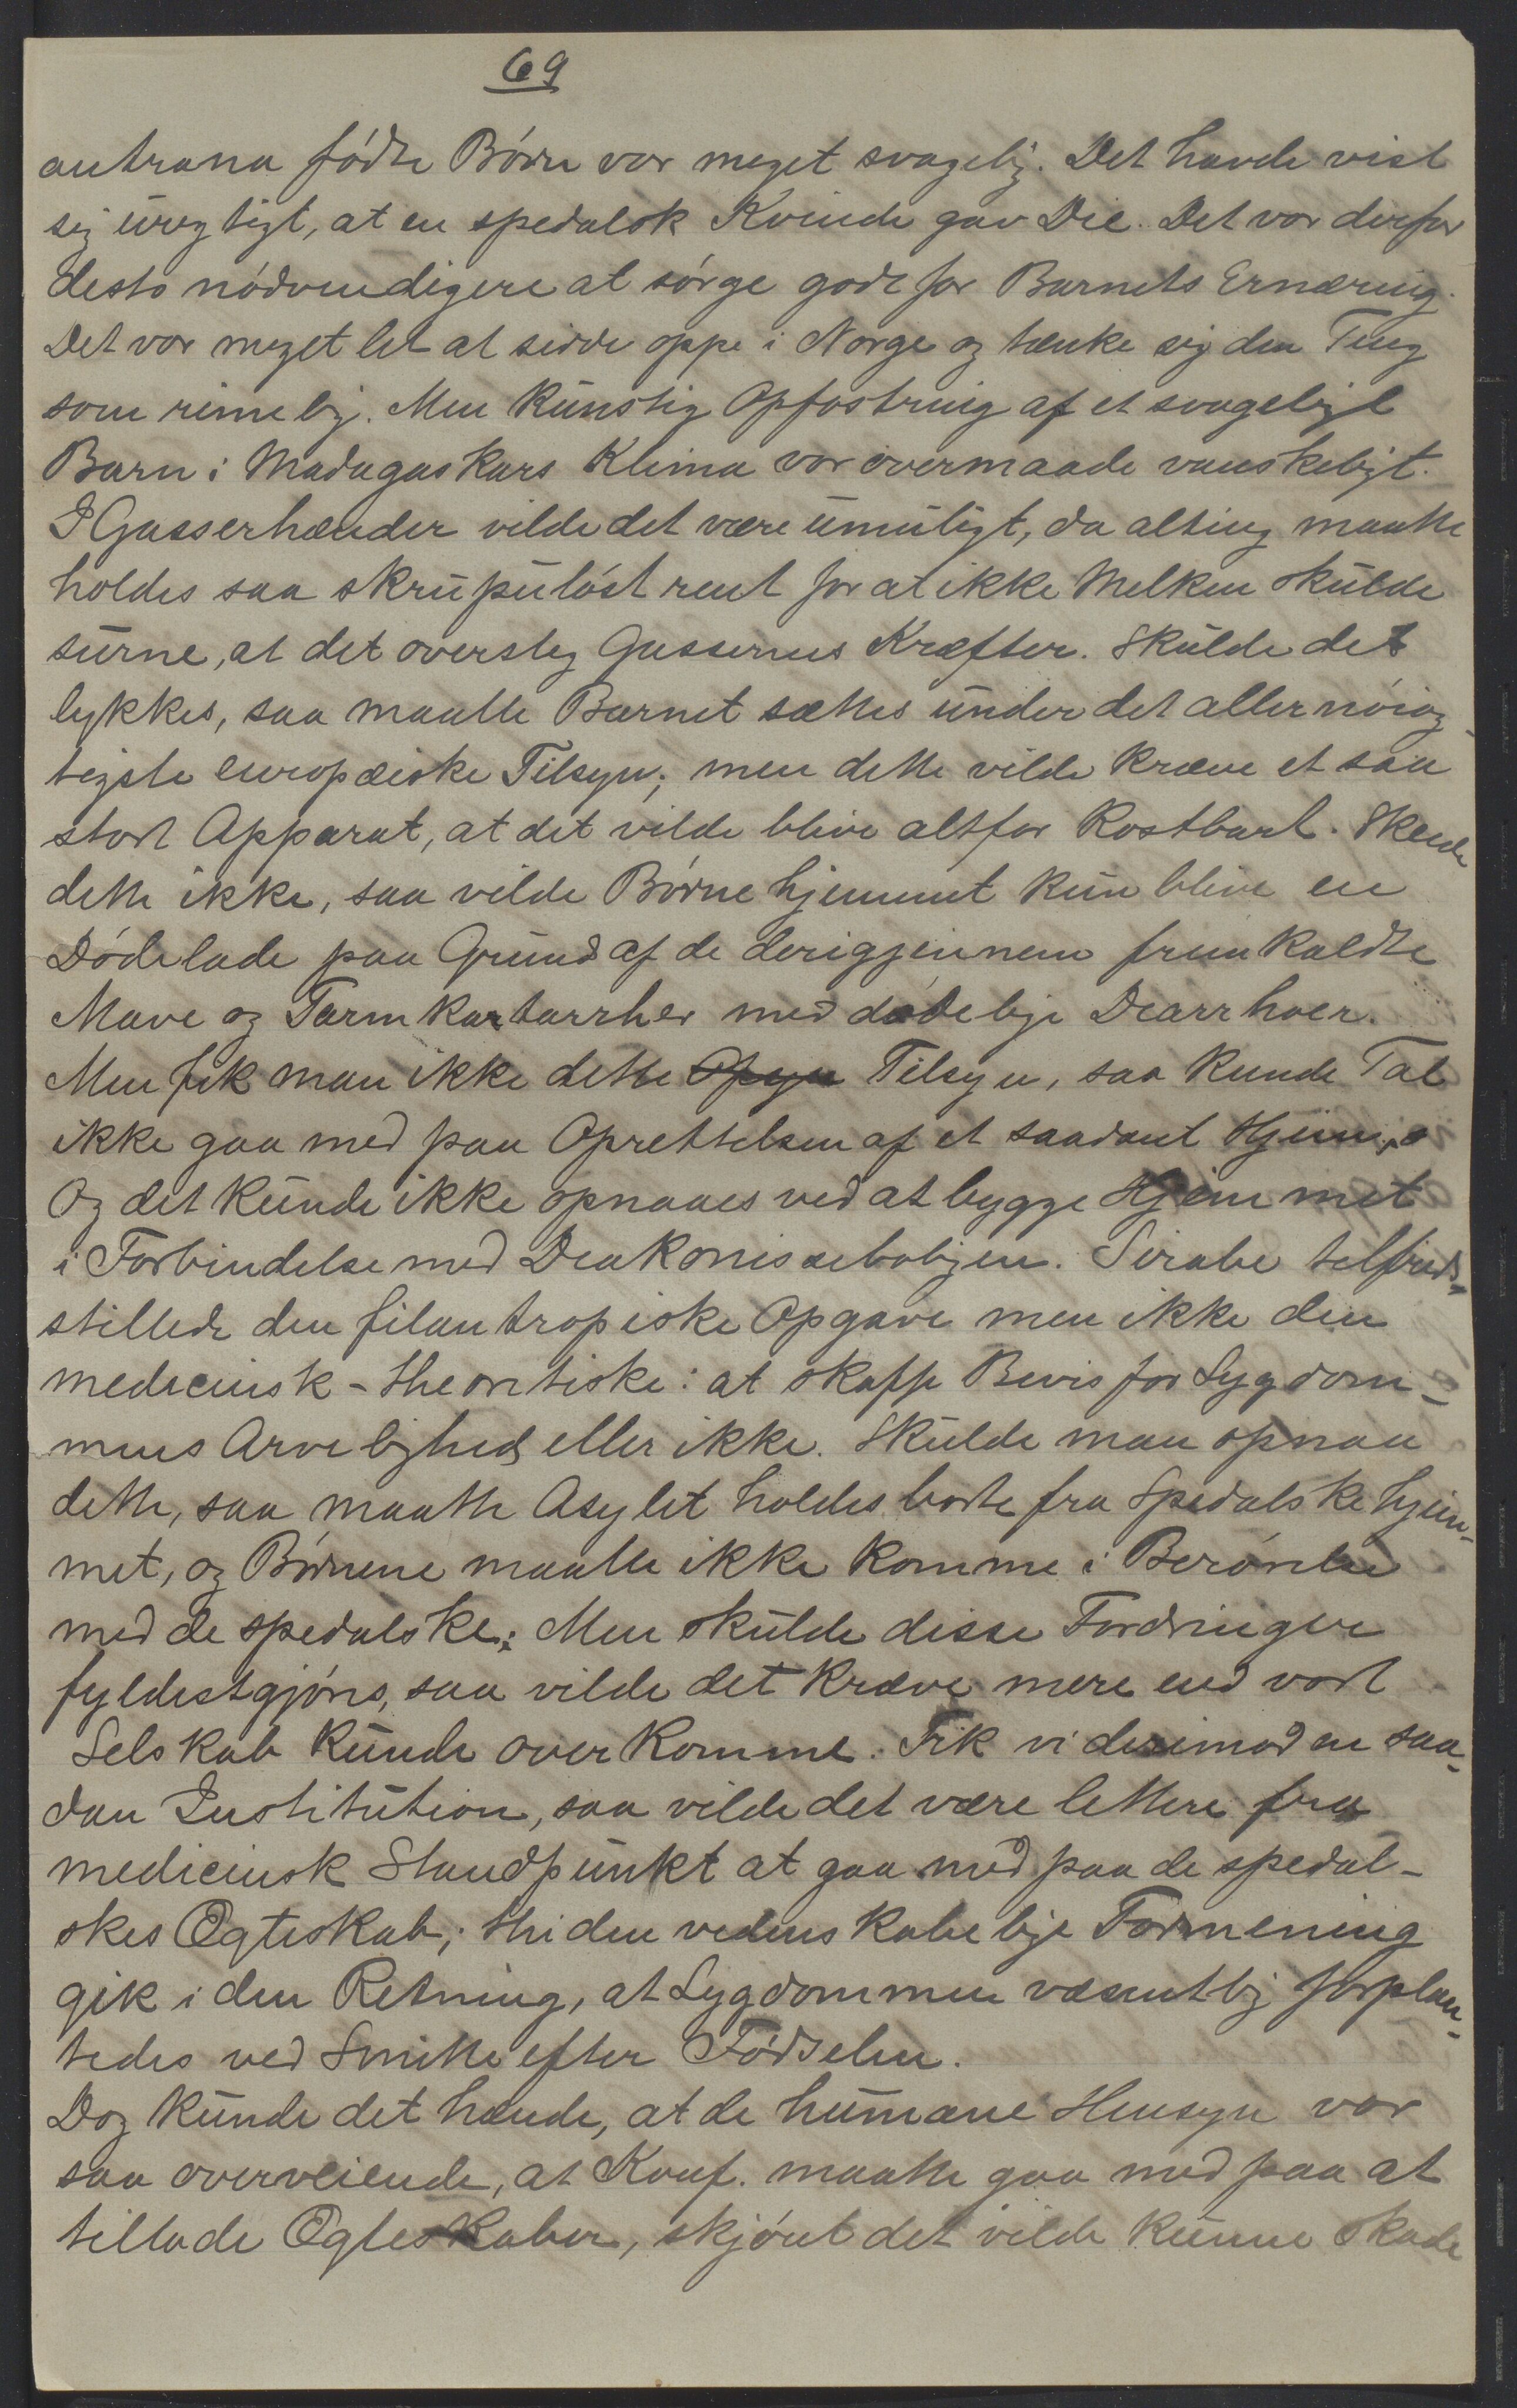 69
antrana fødte Børn var meget svagelig. Det havde vist
sig urigtigt, at en spedalsk Kvinde gav Die. Det var derfor
desto nødvendigere at sørge godt for Barnets Ernæring.
Det var meget let at sidde oppe i Norge og tænke sig den Ting
som rimelig. Men kunstig Opfostring af et svageligt
Barn i Madagaskars Klima var overmaade vanskeligt.
I Gasserhænder vilde det være umuligt, da alting maatte
holdes saa skrupuløst rent for at ikke Melken skulde
surne, at det oversteg Gassernes Kræfter. Skulde det
lykkes, saa maatte Barnet sættes under det allernøiag-
tigste europæiske Tilsyn; men dette vilde kræve et saa
stort Apparat, at det vilde blive altfor kostbart. Skede
dette ikke, saa vilde Børnehjemmet kun blive en
Dødelade paa Grund af de derigjennem fremkaldte
Mave og Tarmkartarrher med dødelige Diarrhoer.
Men fik man ikke dette Tilsyn, saa kunde Tal
ikke gaa med paa Oprettelsen af et saadant Hjem,
Og det kunde ikke opnaaes ved at bygge Hjemmet
i Forbindelse med Diakonisseboligen. Sirabe tilfreds-
stillede den filantropiske Opgave men ikke den
medicinsk-theoretiske: at skaffe Bevis for Sygdom-
mens Arvelighed eller ikke. Skulde man opnaa
dette, saa maatte Asylet holdes borte fra Spedalskehjem-
met, og Børnene maatte ikke komme i Berørelse
med de spedalske; Men skulde disse Fordringer
fyldestgjøres, saa vilde det kræve mere end vort
Selskab kunde overkomme. Fik vi derimod en saa-
dan Institution, saa vilde det være lettere fra
medicinsk Standpunkt at gaa med paa de spedal-
skes Ægteskab; thi den videnskabelige Formening
gik i den Retning, at Sygdommen væsentlig forplan-
tedes ved Smitte efter Fødselen.
Dog kunde det hænde, at de humane Hensyn var
saa overveiende, at Konf. maatte gaa med paa at
tillade Ægteskaber, skjønt det vilde kunne skade